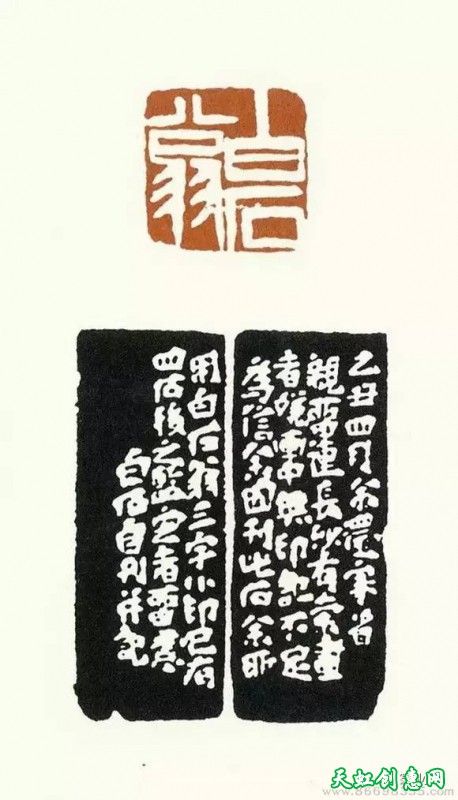 白石翁
乙丑四月余還家省
親長沙有余畫
者無印不足
信余因刊此石余所
用白石翁三字小印已有
四石後之鑒定者留意
白石自刊并記
天虹创意网